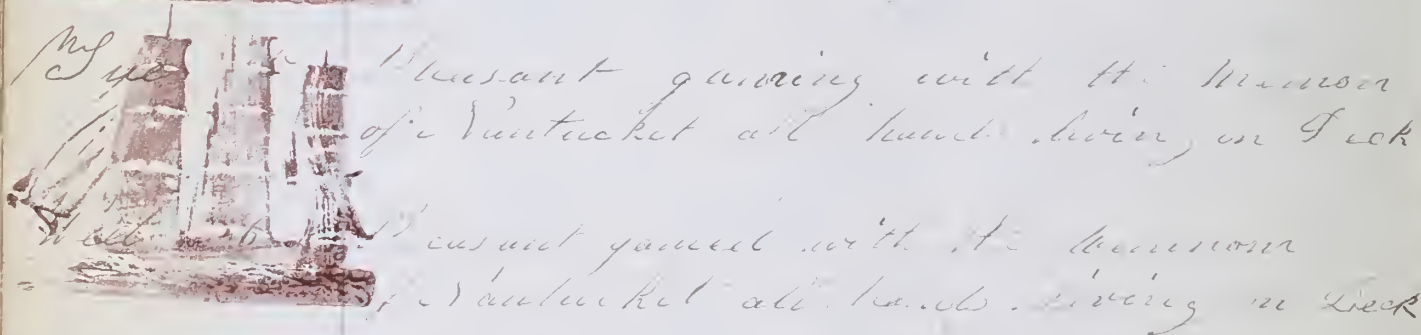 Tues Pleasant gaming with the Memnon
of Nantucket all hands living on Deck
Wed Pleasant gamed with the Memnon
of Nantucket all hands living on Deck